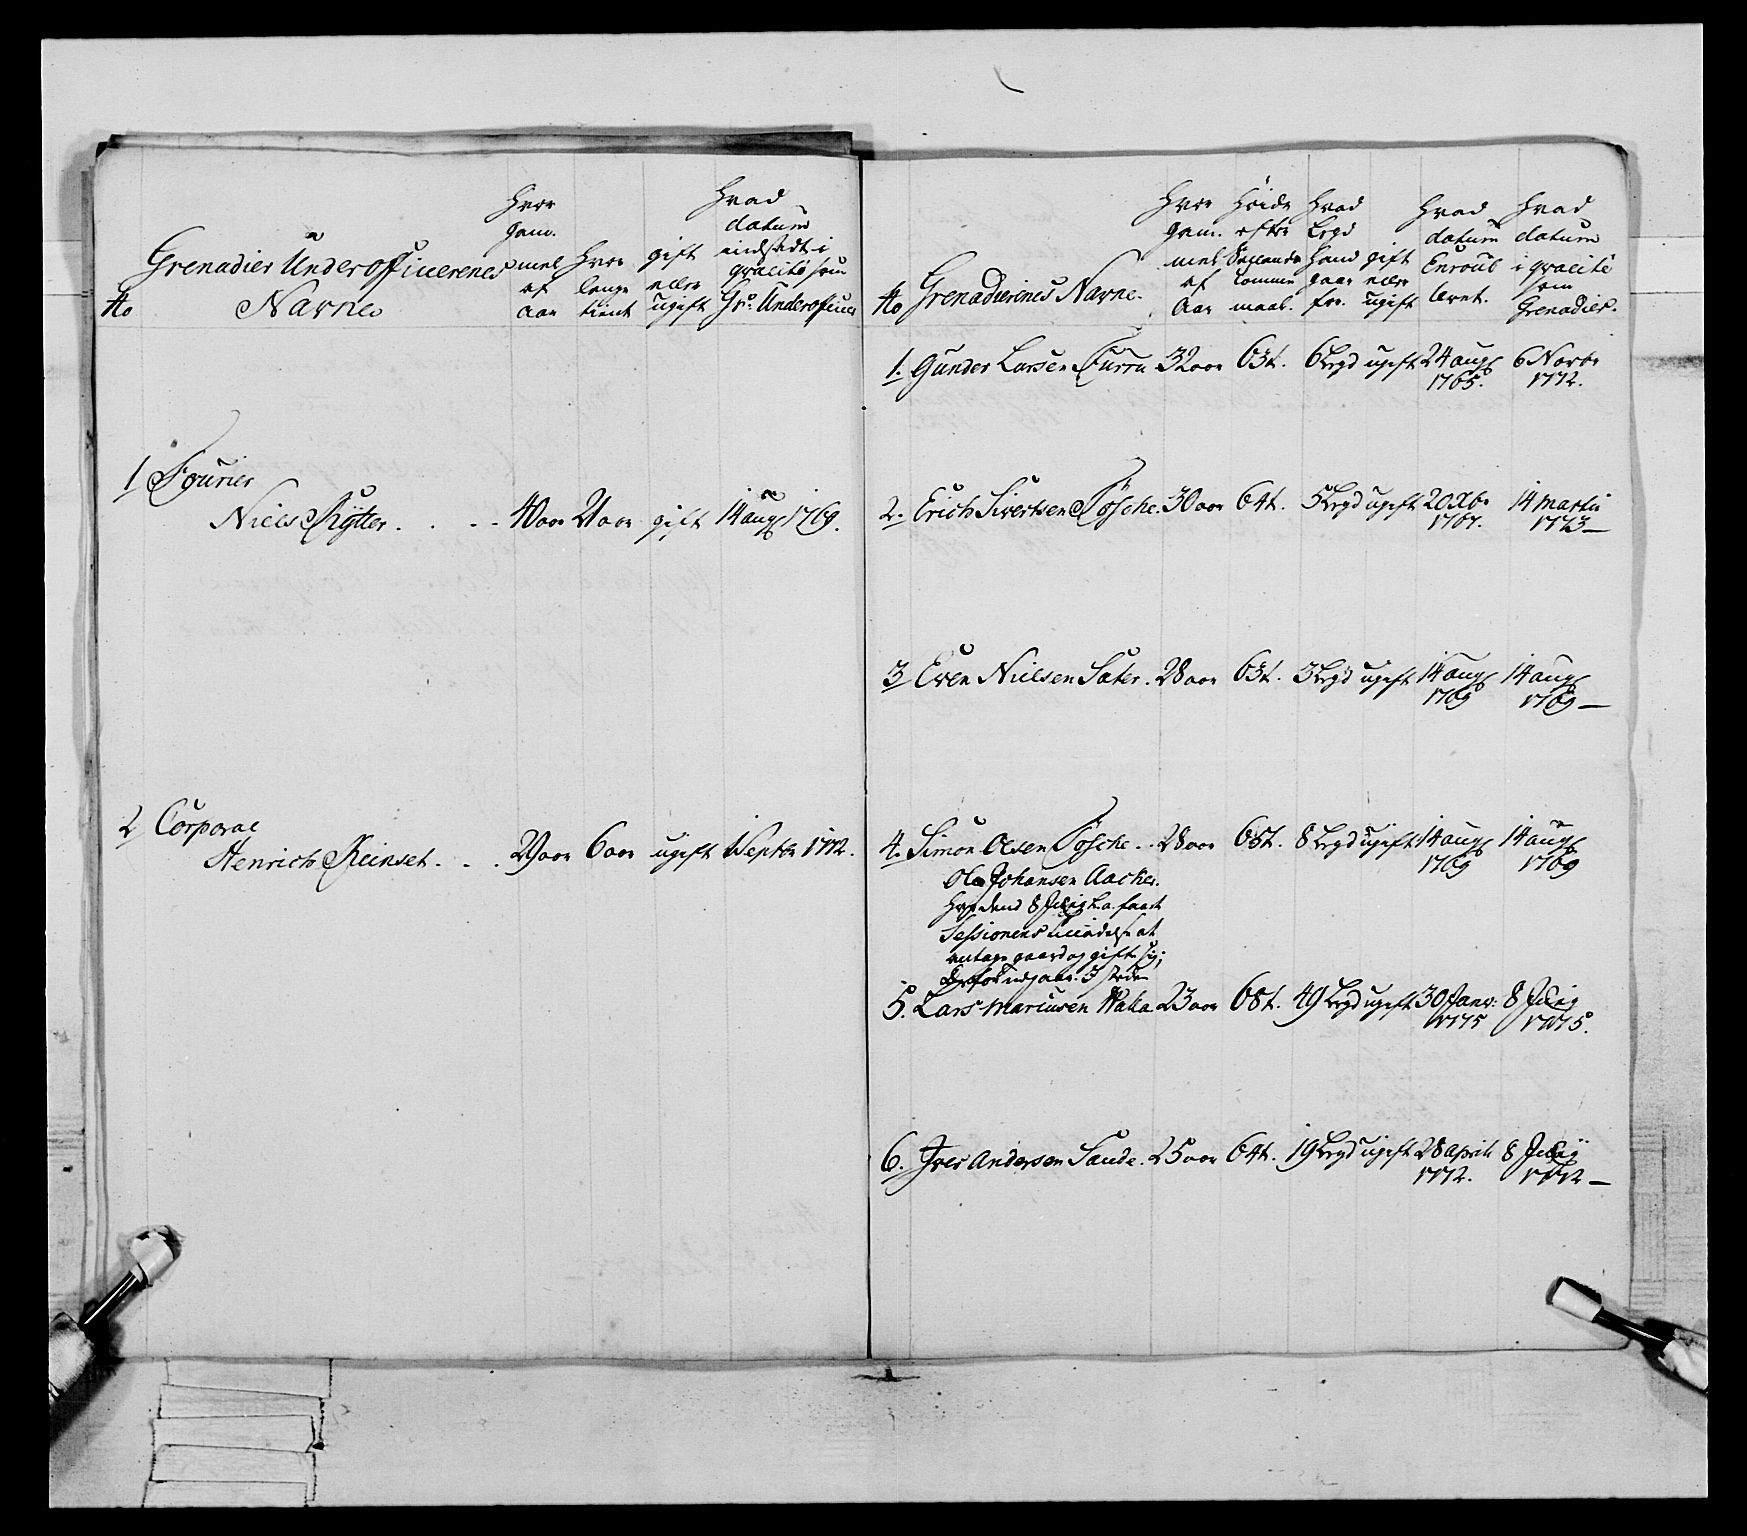 No
Grenadier Underofficerernes
Navne
Hvor
gam-
mel
af
Aar
Hvor
lenge
tient
gift
eller
ugift
Hvad
datum
indsadt i
qvalité som
Gr: Underofficer
1 Fourier
Niels Rytter . . . 40 aar 21 aar gift 14 aug 1769.
2 Corporal
Henrich Reinset . . . 29 aar 6 aar ugift 1 Septbr 1772.
No
Grenadierernes Navne.
Hvor
gam-
mel
af
Aar
Høide
efter
Siellands
tomme
maal.
Hvad
Legd
hand
gaar
for.
gift
eller
ugift
Hvad
datum
Enroul
leret.
Hvad
datum
i qvalité
som
Grenadier.
1. Gunder Larsen Furru 32 aar 63 t. 6 Legd ugift 24 aug 6 Novbr
1765. 1772.
2. Erich Sivertsen Løsche. 30 aar 64 t. 5 Legd ugift 20 Xbr 14 Martii
1767. 1773 —
3 Even Nielsen Sater. 28 aar 63 t. 3 Legd ugift 14 aug 14 aug
1769 1769 —
4. Simon Olsen Løsche . . 28 aar 65 t. 8 Legd ugift 14 aug 14 aug
1769 1769
Ola Johansen Aacker.
Har dend 8 Julij h: a. faaet
Sessionens tilladelse at
antage gaard og gifte sig;
derfor udgaar: I steden
5. Lars Mariusen Waka 23 aar 68 t. 49 Legd ugift 30 Janv: 8 Julij
1775 1775.
6. Iver Andersen Sande. 25 aar 64 t. 19 Legd ugift 28 April 8 Julij
1772. 1772 —